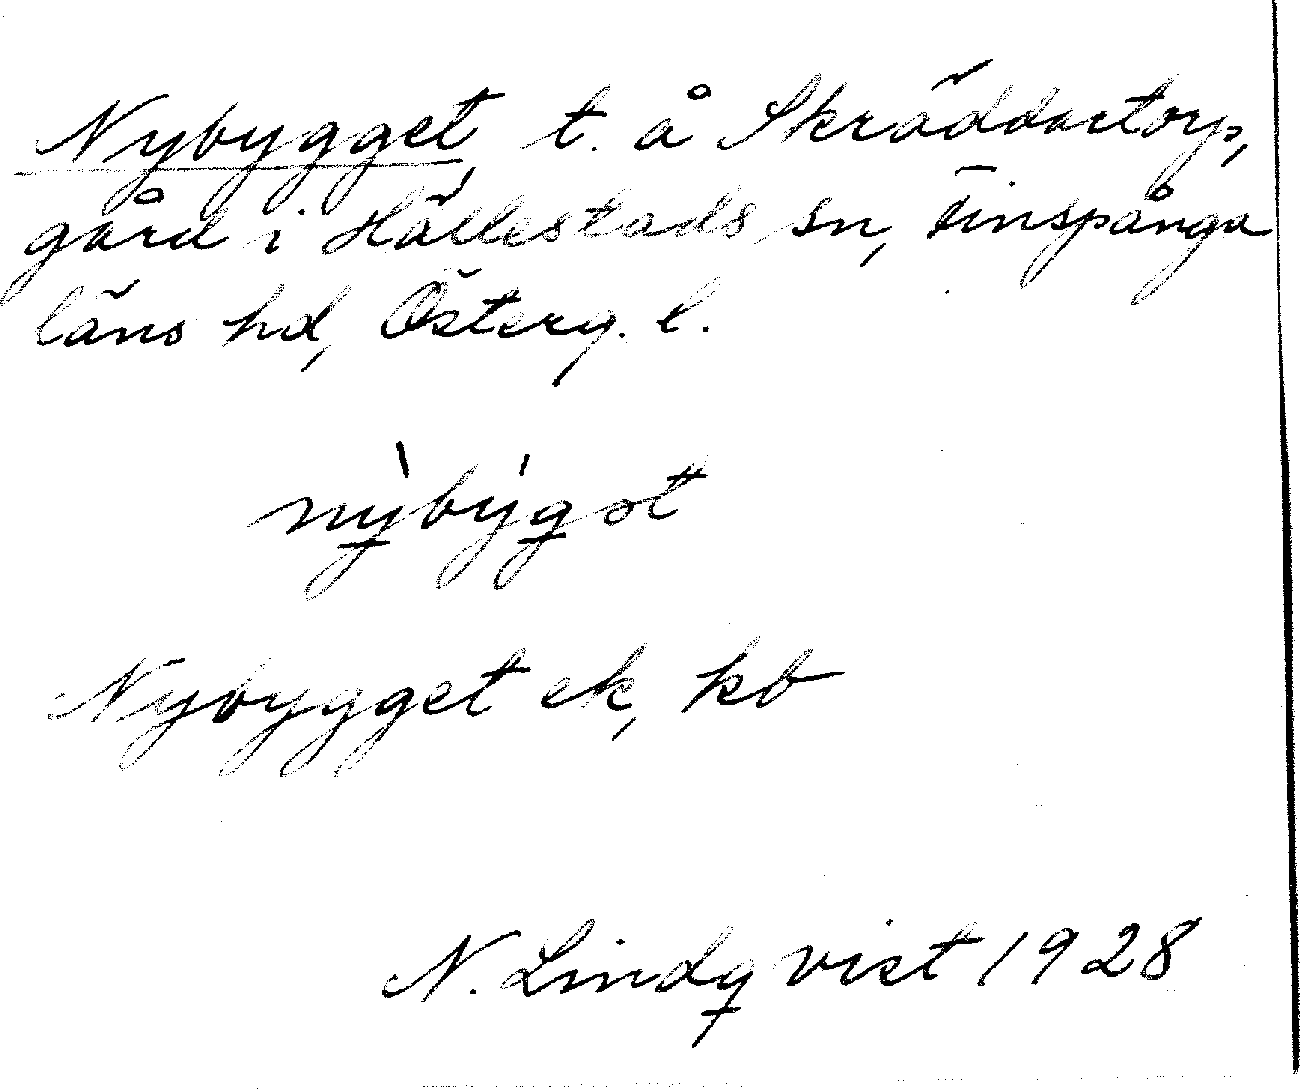 Nybygget, t. å Skräddartorp,
gård i Hällestads sn, Finspånga
läns hd, Österg. l.
nỳbýgət
Nybygget ek, kb
N. Lindqvist 1928